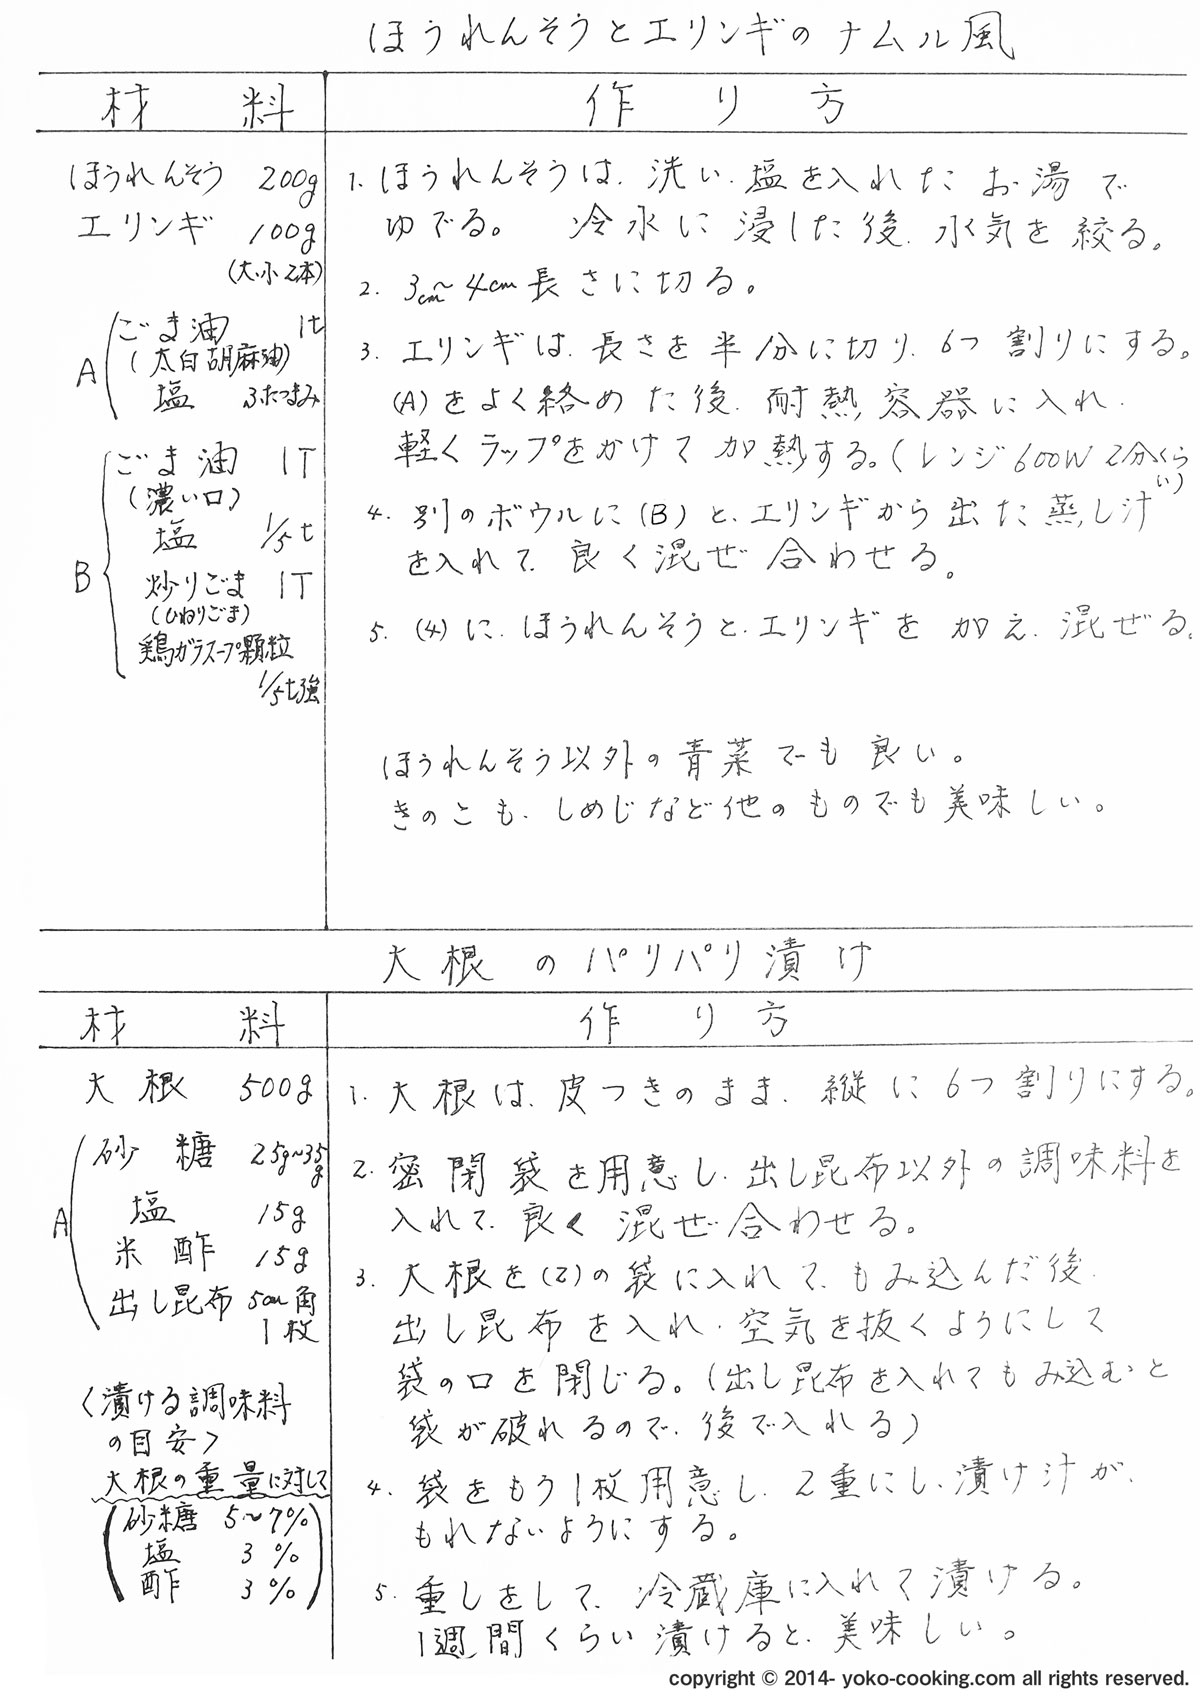 ほうれんそうとエリンギのナムル風
材 料
作 り 方
ほうれんそう 200g
エリンギ 100g
(大.小 2本)
A
ごま油 1t
(太白胡麻油)
塩 ふたつまみ
B
ごま油 1T
(濃い口)
塩 1/5t
炒りごま 1T
(ひねりごま)
鶏ガラスープ顆粒
1/5t強
1. ほうれんそうは、洗い、塩を入れたお湯で
ゆでる。 冷水に浸した後、水気を絞る。
2. 3cm~4cm長さに切る。
3. エリンギは、長さを半分に切り、6つ割りにする。
(A)をよく絡めた後、耐熱容器に入れ、
軽くラップをかけて加熱する。(レンジ600W 2分くら
い)
4. 別のボウルに(B)と、エリンギから出た蒸し汁
を入れて、良く混ぜ合わせる。
5. (4)に、ほうれんそうと、エリンギを加え、混ぜる。
ほうれんそう以外の青菜でも良い。
きのこも、しめじなど他のものでも美味しい。
大根のパリパリ漬け
材 料
作 り 方
大根 500g
A
砂糖 25g~35g
塩 15g
米酢 15g
出し昆布 5cm角
1枚
<漬ける調味料
の目安>
大根の重量に対して
(砂糖 5~7%
塩 3%
酢 3%)
1. 大根は、皮つきのまま、縦に6つ割りにする。
2. 密閉袋を用意し、出し昆布以外の調味料を
入れて、良く混ぜ合わせる。
3. 大根を(2)の袋に入れて、もみ込んだ後、
出し昆布を入れ、空気を抜くようにして
袋の口を閉じる。(出し昆布を入れてもみ込むと
袋が破れるので、後で入れる)
4. 袋をもう1枚用意し、2重にし、漬け汁が、
もれないようにする。
5. 重しをして、冷蔵庫に入れて漬ける。
1週間くらい漬けると、美味しい。
copyright © 2014- yoko-cooking.com all rights reserved.